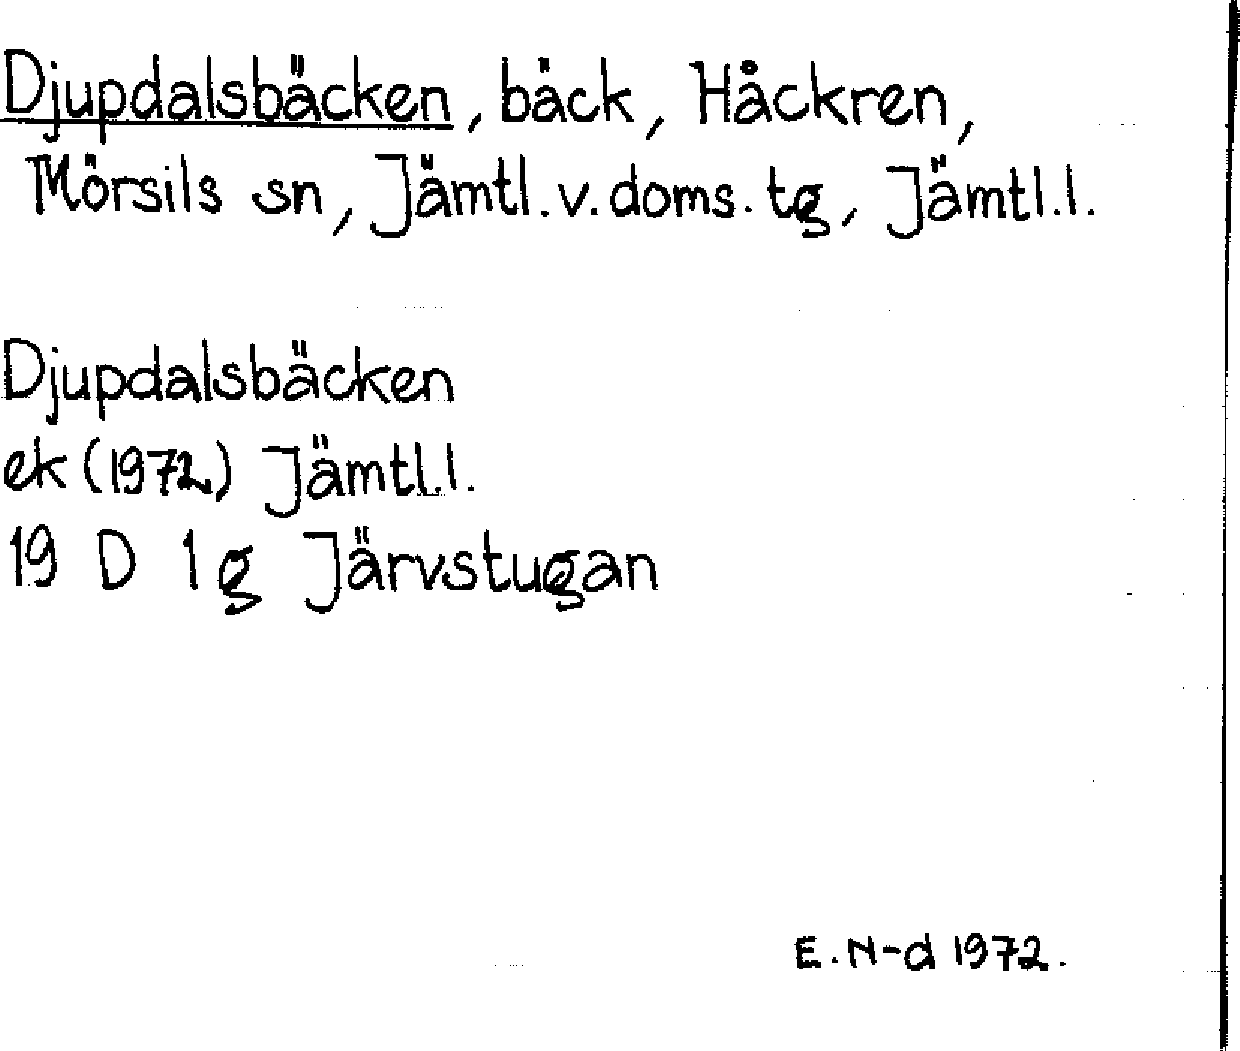 Djupdalsbäcken, bäck, Håckren,
Mörsils sn, Jämtl.v.doms.tg, Jämtl.l.
Djupdalsbäcken
ek (1972) Jämtl.l.
19 D 1 g Järvstugan
E.N-d 1972.